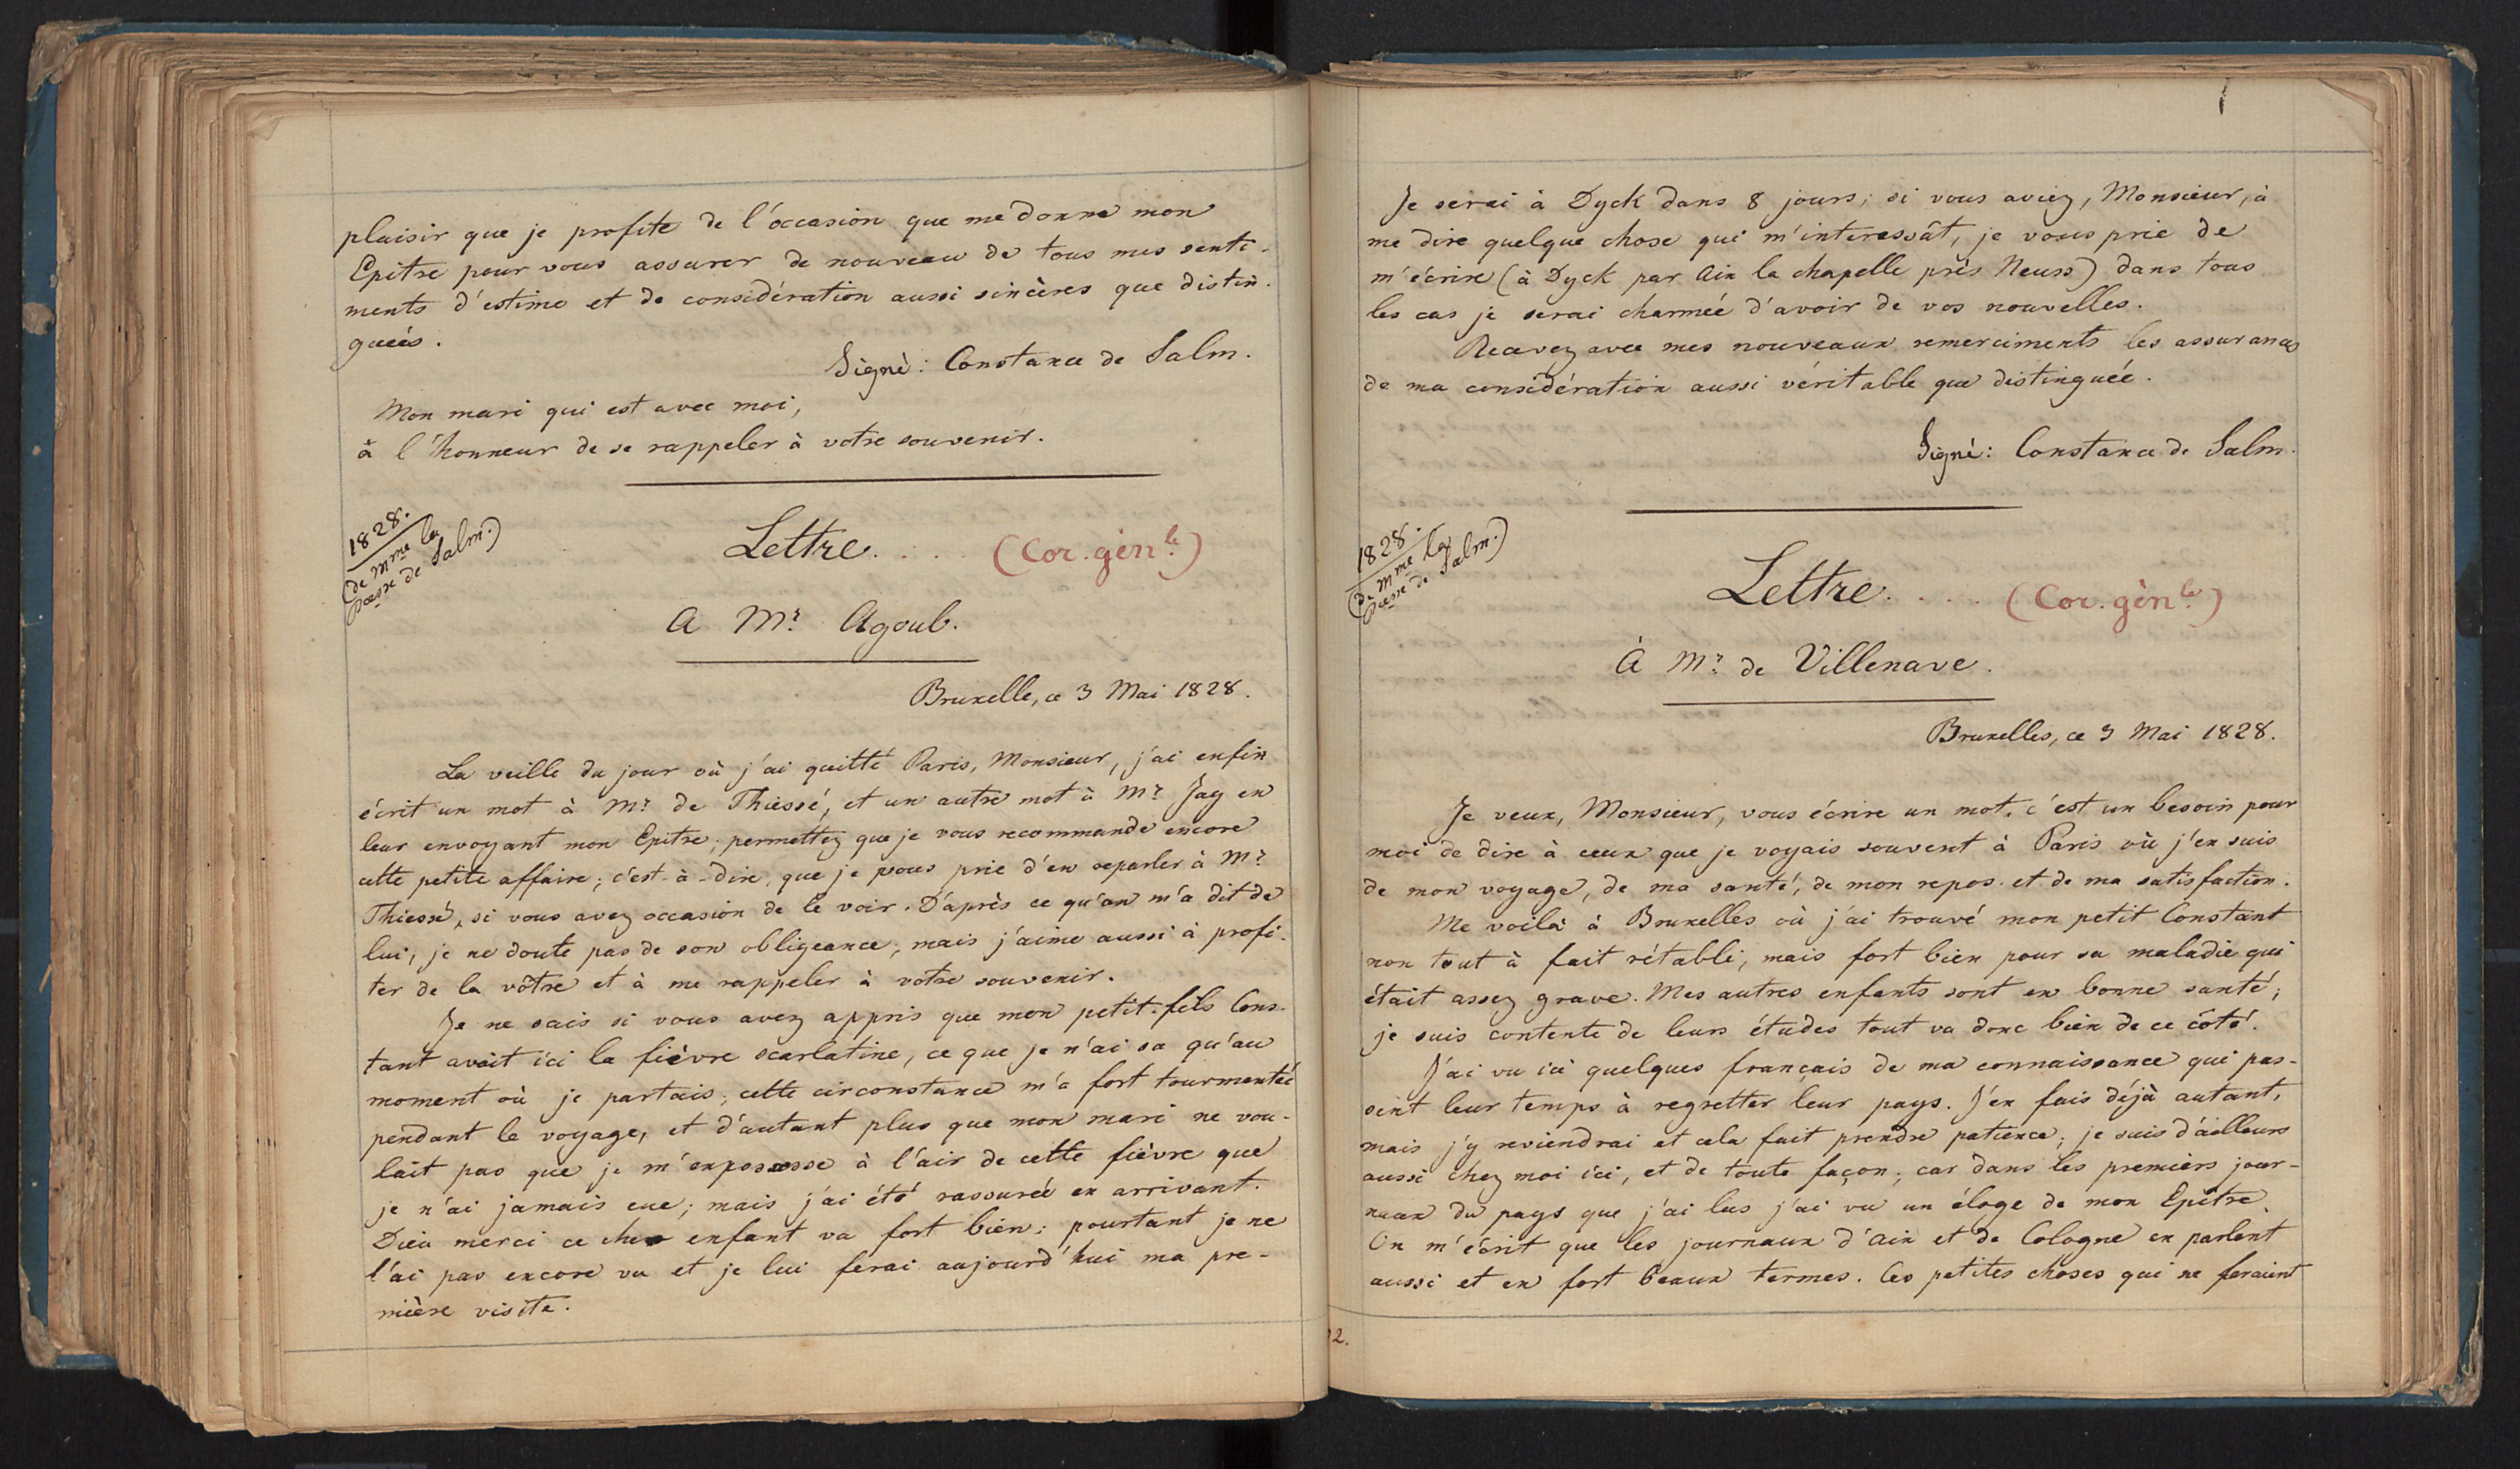 plaisir que je profite de l'occasion que me donne mon
Epitre pour vous assurer de nouveau de tous mes senti-
ments d'estime et de considération aussi sincères que distin-
guées.
Signé: Constance de Salm.
Mon mari qui est avec moi,
a l'honneur de se rappeler à votre souvenir.
1828.
(de Mme la
Pcesse de Salm.)
Lettre.... (Cor. génle.)
A Mr. Agoub.
Bruxelle, ce 3 Mai 1828.
La veille du jour où j'ai quitté Paris, Monsieur, j'ai enfin
écrit un mot à Mr. de Thiessé, et un autre mot à Mr. Jay en
leur envoyant mon Epitre; permettez que je vous recommande encore
cette petite affaire; c'est-à-dire, que je vous prie d'en reparler à Mr.
Thiessé, si vous avez occasion de le voir. D'après ce qu'on m'a dit de
lui, je ne doute pas de son obligeance; mais j'aime aussi à profi-
ter de la vôtre et à me rappeler à votre souvenir.
Je ne sais si vous avez appris que mon petit-fils Cons-
tant avait ici la fièvre scarlatine, ce que je n'ai su qu'au
moment où je partais; cette circonstance m'a fort tourmentée
pendant le voyage, et d'autant plus que mon mari ne vou-
lait pas que je m'exposasse à l'air de cette fièvre que
je n'ai jamais eue; mais j'ai été rassurée en arrivant.
Dieu merci ce cher enfant va fort bien; pourtant je ne
l'ai pas encore vu et je lui ferai aujourd'hui ma pre-
mière visite.
Je serai à Dyck dans 8 jours; si vous aviez, Monsieur, à
me dire quelque chose qui m'interessât, je vous prie de
m'écrire (à Dyck par Aix la chapelle près Neuss) dans tous
les cas je serai charmée d'avoir de vos nouvelles.
Recevez avec mes nouveaux remerciments les assurances
de ma considération aussi véritable que distinguée.
Signé: Constance de Salm.
1828.
(de Mme la
Pcesse de Salm.)
Lettre.... (Cor. génle.)
À Mr. de Villenave.
Bruxelles, ce 3 Mai 1828.
Je veux, Monsieur, vous écrire un mot. c'est un besoin pour
moi de dire à ceux que je voyais souvent à Paris où j'en suis
de mon voyage, de ma santé, de mon repos et de ma satisfaction.
Me voilà à Bruxelles où j'ai trouvé mon petit Constant
non tout à fait rétabli, mais fort bien pour sa maladie qui
était assez grave. Mes autres enfants sont en bonne santé;
je suis contente de leurs études tout va donc bien de ce côté.
J'ai vu ici quelques français de ma connaissance qui pas-
sent leur temps à regretter leur pays. J'en fais déjà autant,
mais j'y reviendrai et cela fait prendre patience; je suis d'ailleurs
aussi chez moi ici, et de toute façon; car dans les premiers jour-
naux du pays que j'ai lus j'ai vu un éloge de mon Epître.
On m'écrit que les journaux d'Aix et de Cologne en parlent
aussi et en fort beaux termes. Ces petites choses qui ne feraient